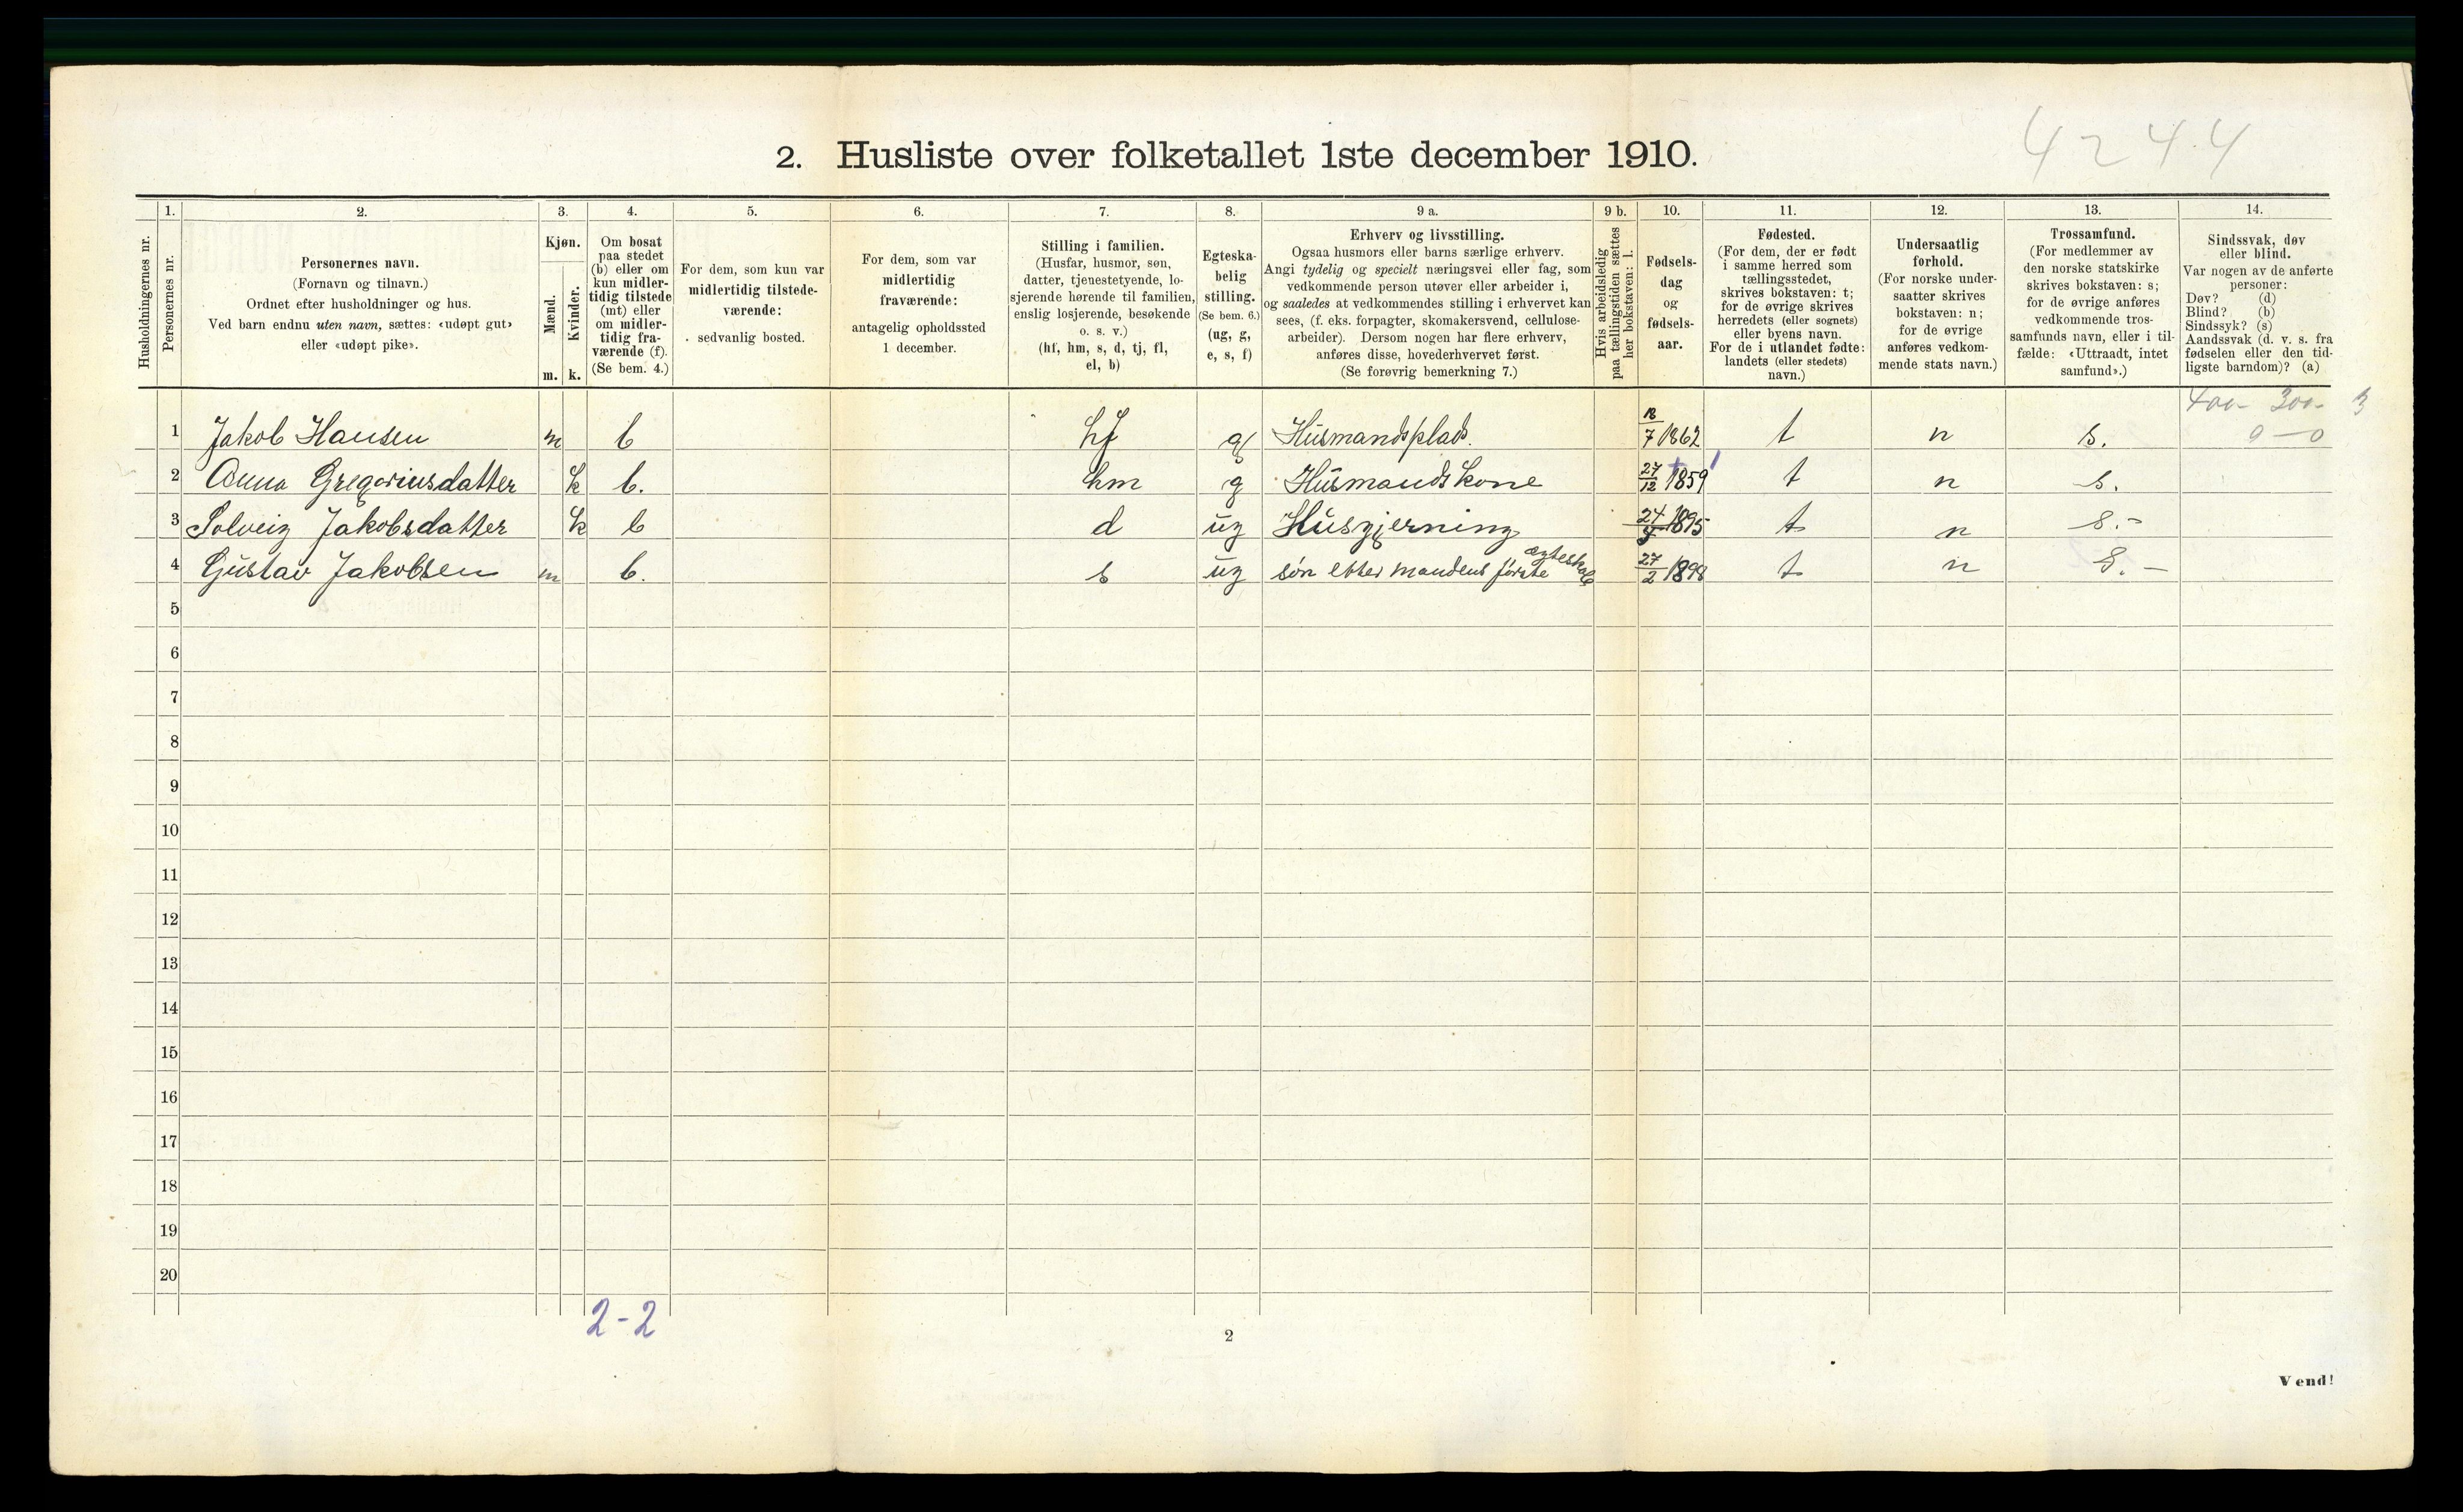 4244
2. Husliste over folketallet 1ste december 1910.
1. 2. 3. 4. 5. 6. 7. 8. 9 a. 9 b. 10. 11. 12. 13. 14.
Husholdningernes nr.
Personernes nr.
Personernes navn.
(Fornavn og tilnavn.)
Ordnet efter husholdninger og hus.
Ved barn endnu uten navn, sættes: «udøpt gut»
eller «udøpt pike».
Kjøn.
Mænd.
Kvinder.
m. k.
Om bosat
paa stedet
(b) eller om
kun midler-
tidig tilstede
(mt) eller
om midler-
tidig fra-
værende (f).
(Se bem. 4.)
For dem, som kun var
midlertidig tilstede-
værende:
sedvanlig bosted.
For dem, som var
midlertidig
fraværende:
antagelig opholdssted
1 december.
Stilling i familien.
(Husfar, husmor, søn,
datter, tjenestetyende, lo-
sjerende hørende til familien,
enslig losjerende, besøkende
o. s. v.)
(hf, hm, s, d, tj, fl,
el, b)
Egteska-
belig
stilling.
(Se bem. 6.)
(ug, g,
e, s, f)
Erhverv og livsstilling.
Ogsaa husmors eller barns særlige erhverv.
Angi tydelig og specielt næringsvei eller fag, som
vedkommende person utøver eller arbeider i,
og saaledes at vedkommendes stilling i erhvervet kan
sees, (f. eks. forpagter, skomakersvend, cellulose-
arbeider). Dersom nogen har flere erhverv,
anføres disse, hovederhvervet først.
(Se forøvrig bemerkning 7.)
Hvis arbeidsledig
paa tællingstiden sættes
her bokstaven: l.
Fødsels-
dag
og
fødsels-
aar.
Fødested.
(For dem, der er født
i samme herred som
tællingsstedet,
skrives bokstaven: t;
for de øvrige skrives
herredets (eller sognets)
eller byens navn.
For de i utlandet fødte:
landets (eller stedets)
navn.)
Undersaatlig
forhold.
(For norske under-
saatter skrives
bokstaven: n;
for de øvrige
anføres vedkom-
mende stats navn.)
Trossamfund.
(For medlemmer av
den norske statskirke
skrives bokstaven: s;
for de øvrige anføres
vedkommende tros-
samfunds navn, eller i til-
fælde: «Uttraadt, intet
samfund».)
Sindssvak, døv
eller blind.
Var nogen av de anførte
personer:
Døv? (d)
Blind? (b)
Sindssyk? (s)
Aandssvak (d. v. s. fra
fødselen eller den tid-
ligste barndom)? (a)
400- 300- 3
0-0
1 Jakob Hansen m b hf g Husmandsplads. 18/7 1862 t n s.
2 Anna Gregoriusdatter k b. hm g Husmandskone 27/12 1859 t n s.
3 Solveig Jakobsdatter k b d ug Husgjerning 24 1895 t n s.-
4 Gustav Jakobsen m b. s ug søn efter mandens første ægteskab 27/2 1898 t n S.-
5
6
7
8
9
10
11
12
13
14
15
16
17
18
19
20
2-2
2
Vend!